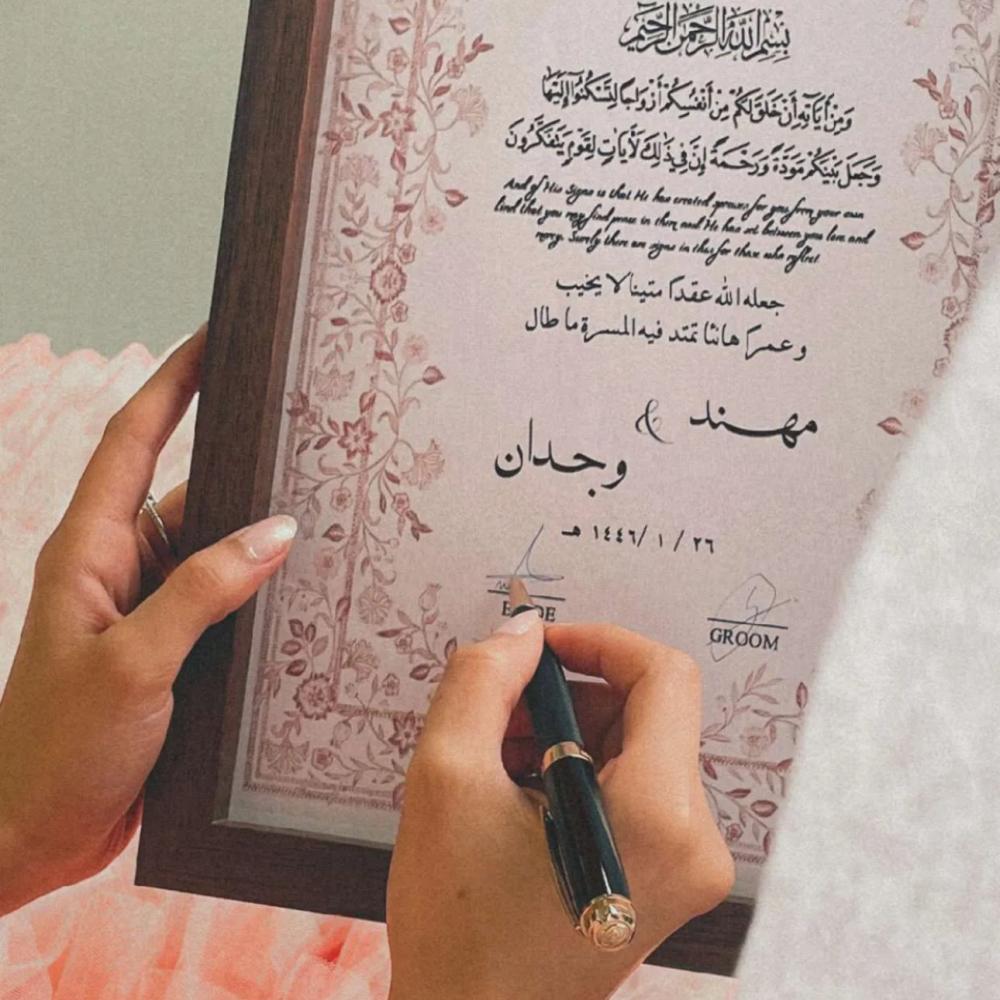 بِسْمِ اللَّهِ الرَّحْمَنِ الرَّحِيمِ
وَمِنْ آيَاتِهِ أَنْ خَلَقَ لَكُمْ مِنْ أَنْفُسِكُمْ أَزْوَاجًا لِتَسْكُنُوا إِلَيْهَا
وَجَعَلَ بَيْنَكُمْ مَوَدَّةً وَرَحْمَةً إِنَّ فِي ذَلِكَ لَآيَاتٍ لِقَوْمٍ يَتَفَكَّرُونَ
And of His Signs is that He has created spouses for you from your own
kind that you may find peace in them and He has set between you love and
mercy. Surely there are signs in this for those who reflect
جعله الله عقدا متينا لا يخيب
و عمرا هانئا تمتد فيه المسرة ما طال
مهند &
وجدان
٢٦ / ١ / ١٤٤٦ هـ
GROOM